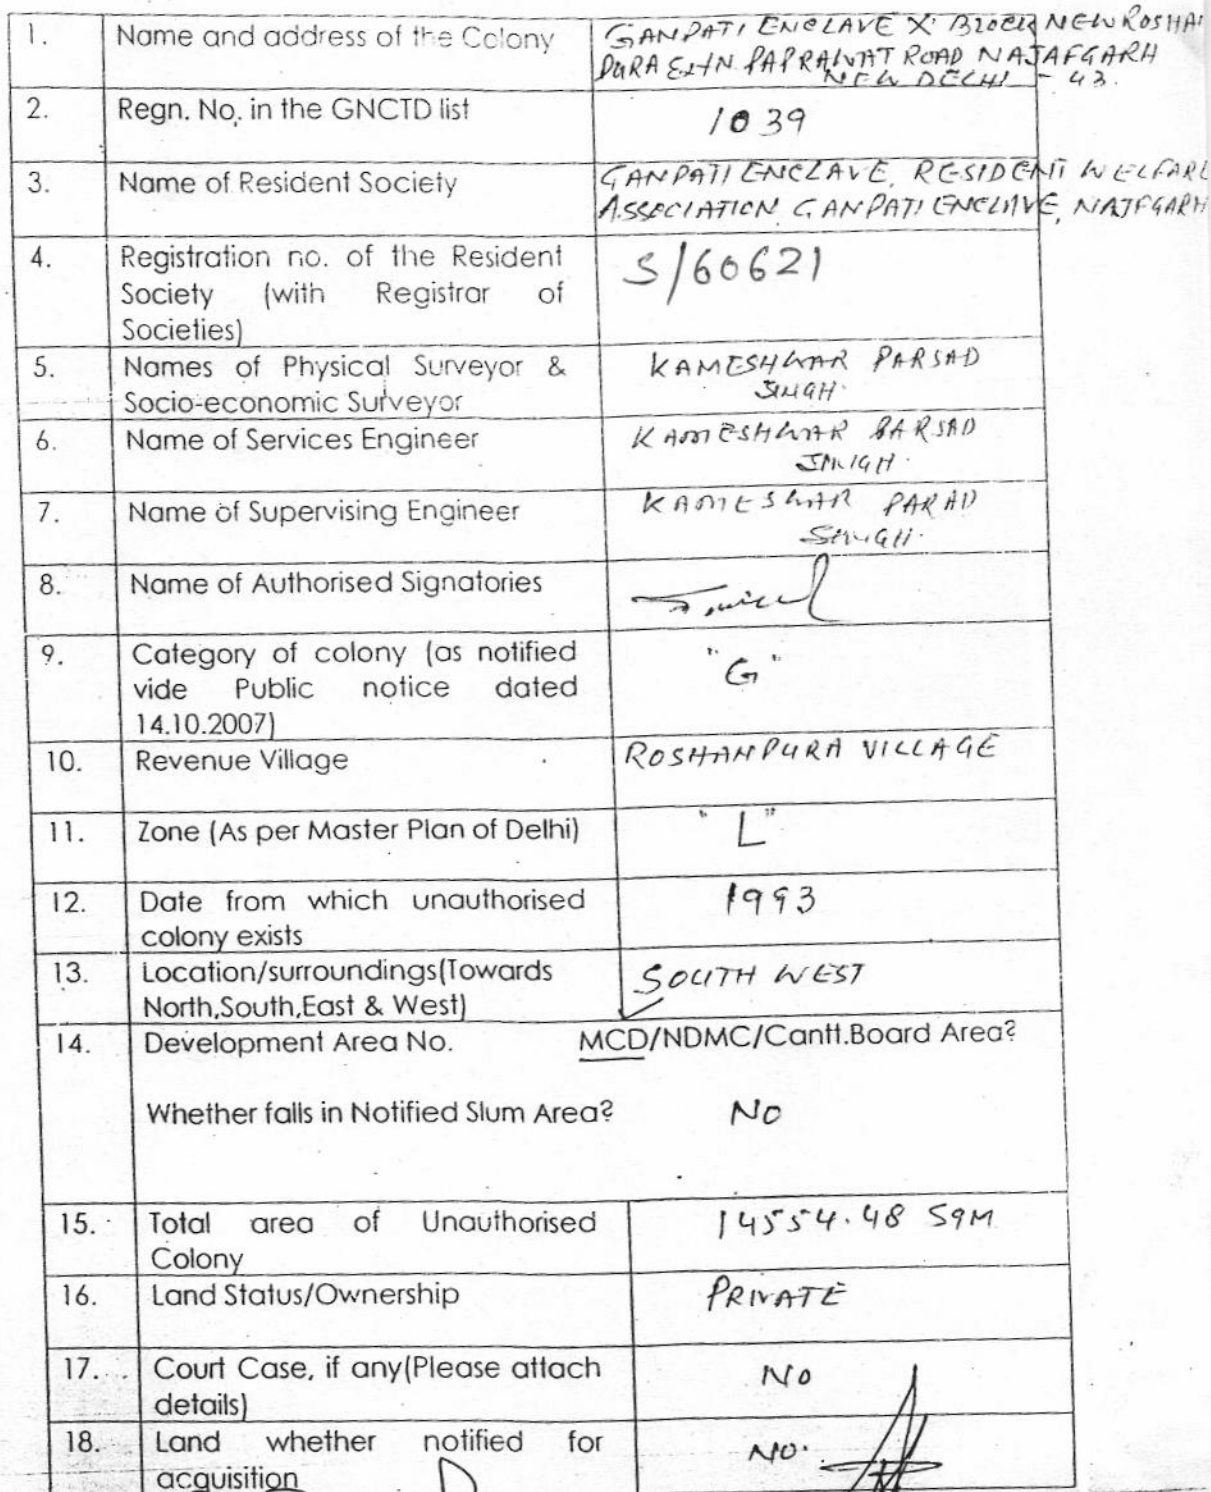 1. Name and address of the Colony GANPATI ENCLAVE X' BLOCK NEW ROSHAN
PURA EXTN. PAPRAWAT ROAD NAJAFGARH
NEW DELHI - 43.
2. Regn. No. in the GNCTD list 1039
3. Name of Resident Society GANPATI ENCLAVE, RESIDENT WELFARE
ASSOCIATION GANPATI ENCLAVE, NAJFGARH
4. Registration no. of the Resident S/60621
Society (with Registrar of
Societies)
5. Names of Physical Surveyor & KAMESHWAR PARSAD
Socio-economic Surveyor SINGH.
6. Name of Services Engineer KAMESHWAR PARSAD
SINGH.
7. Name of Supervising Engineer KAMESWAR PARAD
SINGH.
8. Name of Authorised Signatories
9. Category of colony (as notified "G"
vide Public notice dated
14.10.2007)
10. Revenue Village ROSHANPURA VILLAGE
11. Zone (As per Master Plan of Delhi) "L"
12. Date from which unauthorised 1993
colony exists
13. Location/surroundings(Towards SOUTH WEST
North,South,East & West)
14. Development Area No. MCD/NDMC/Cantt.Board Area?
Whether falls in Notified Slum Area? NO
15. Total area of Unauthorised 14554.48 SQM
Colony
16. Land Status/Ownership PRIVATE
17. Court Case, if any(Please attach NO
details)
18. Land whether notified for NO.
acquisition